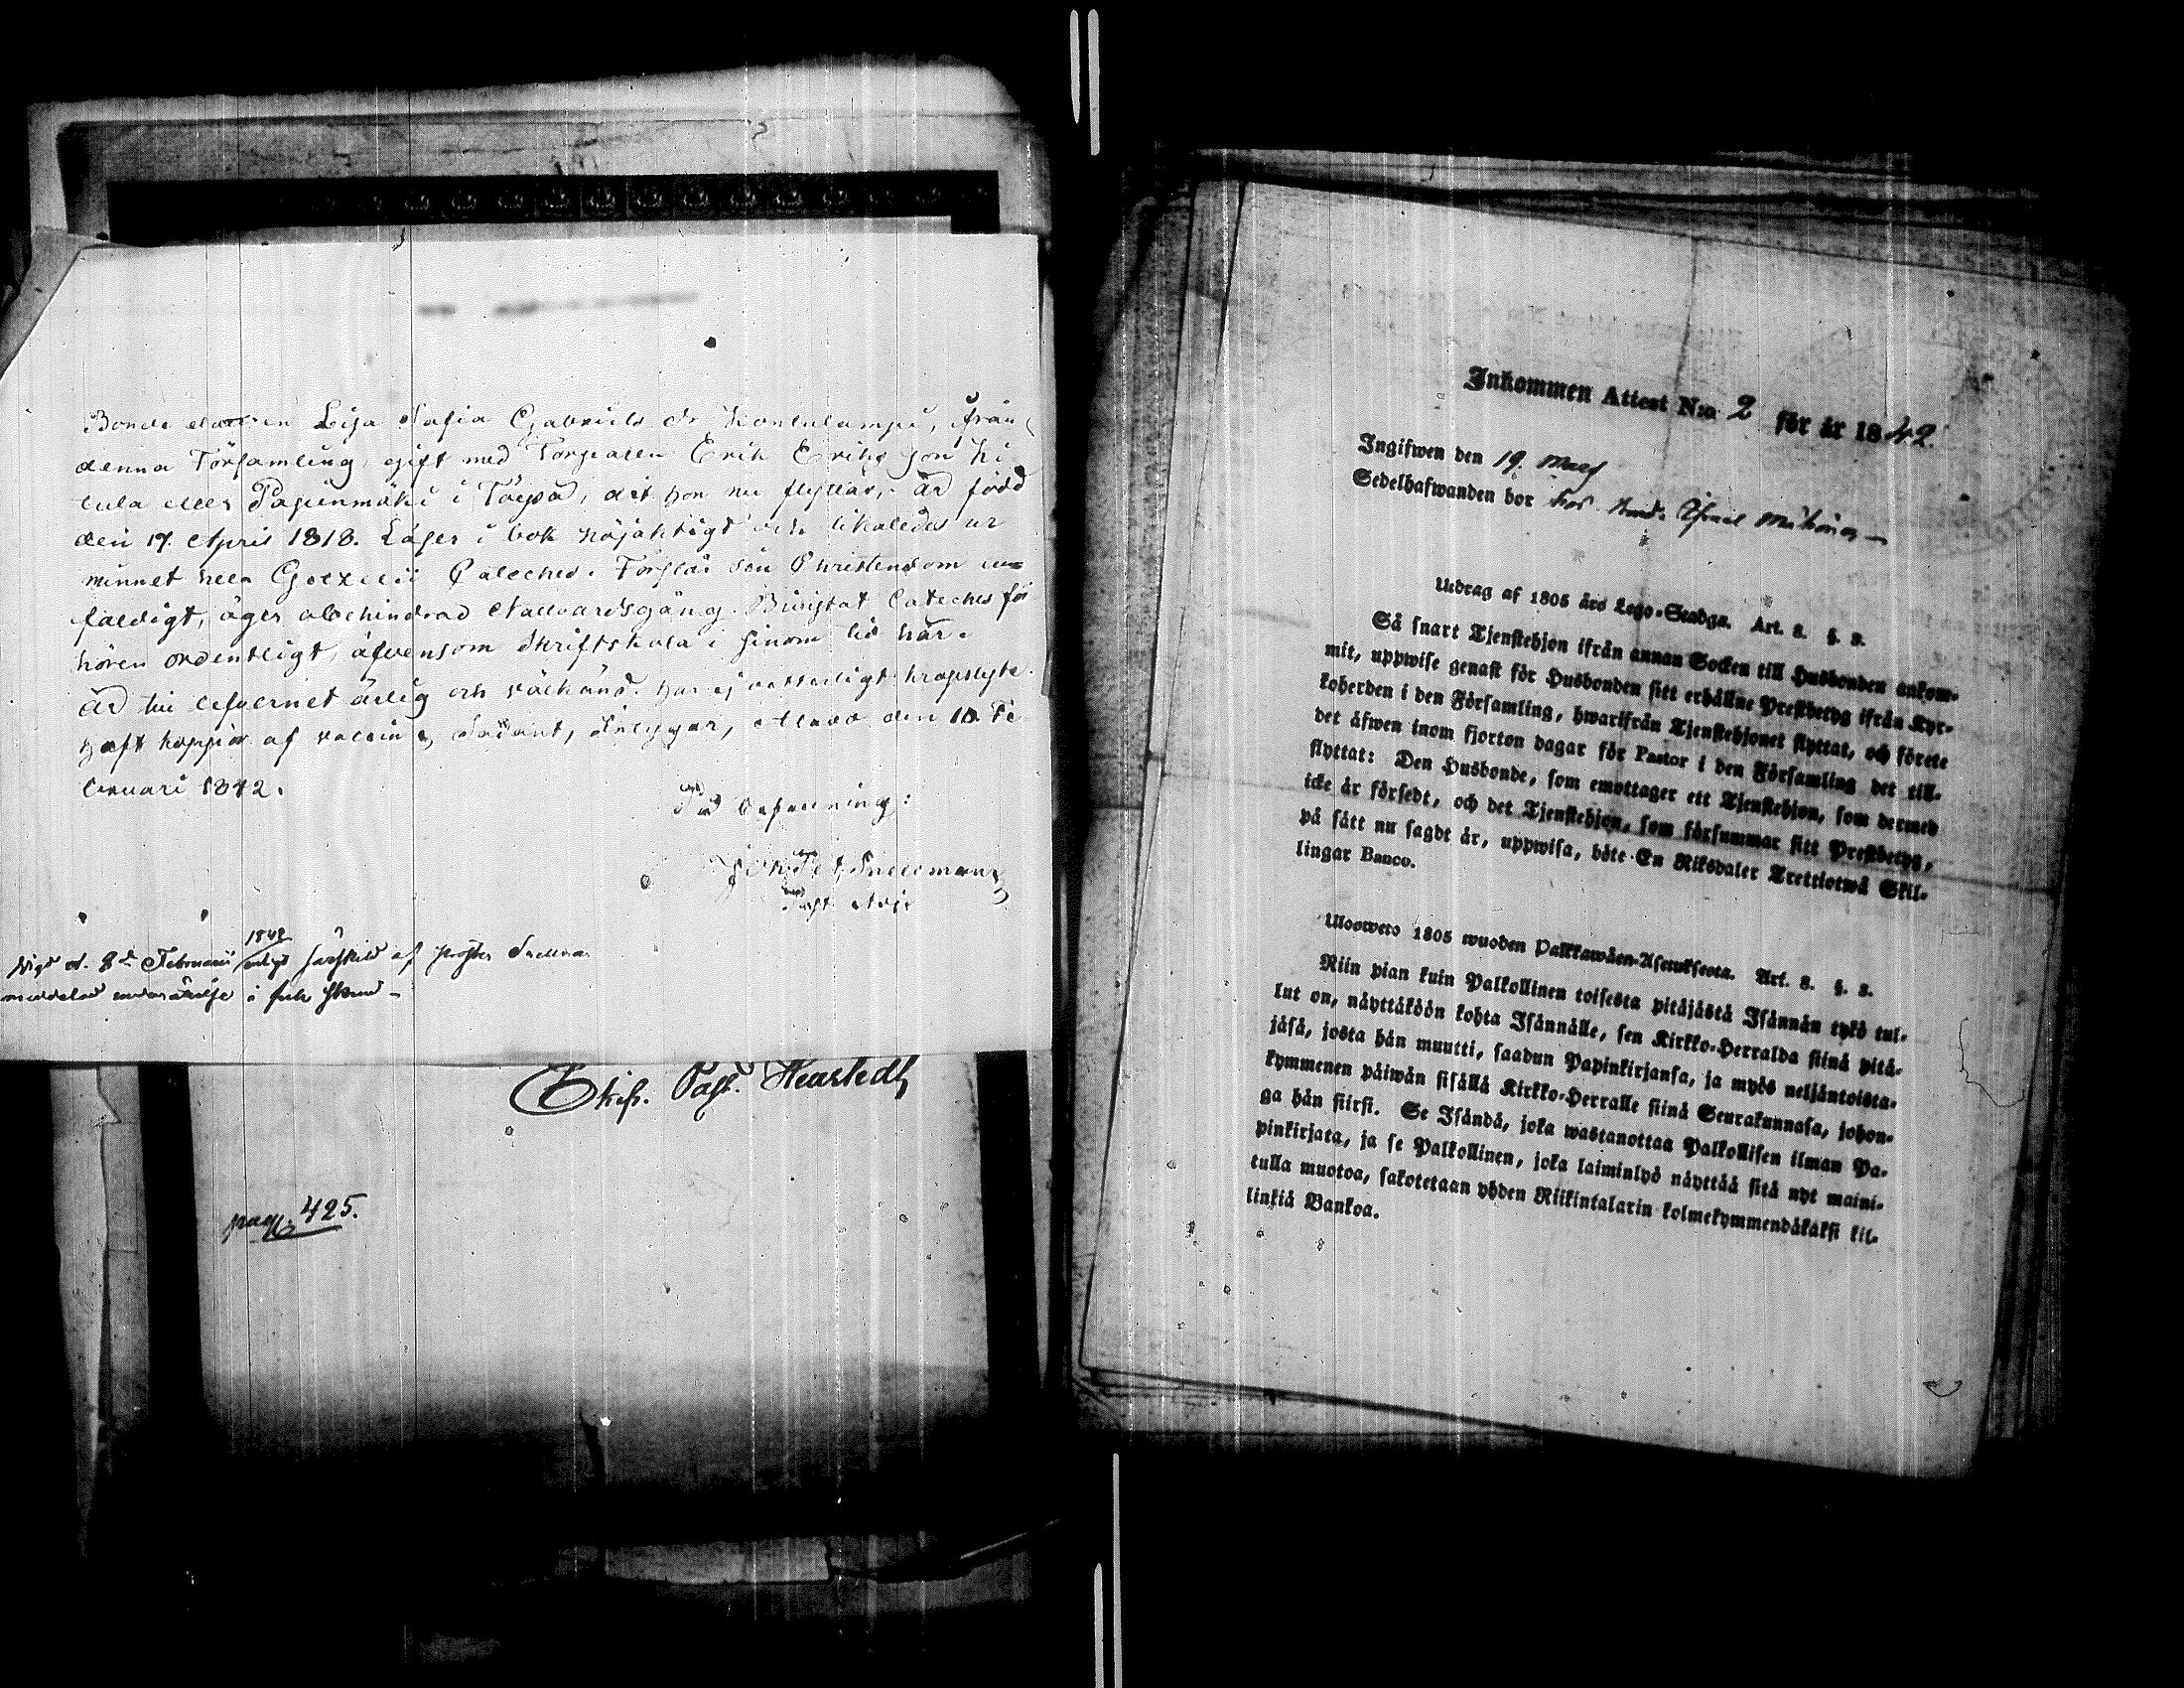 Bonde dottren Lisa Sofia Gabriels dr Kontulampi, från
denna Församling, gift med Torparen Erik Eriks son
eller i dit hon nu flyttar, är född
den 17. April 1818. Läser i bok nöjaktigt och likaledes ur
minnet hela Gezelii Cateches. Förstår sin Christendom en-
faldigt, äger obehindrad Nattvardsgång. Bivistat Catechis för
hören ordentligt, äfvensom Skriftskola i sinom tid här.
är till lefvernet ärlig och välkänd. har ej vetterligt kropslyte.
haft koppor af vaccin. Sådant, intygar, Alavo den 18. Fe
bruari 1842.
På befallning:
Snellman
Past. Adj.
Vigd d. 8de Februarii 1842 enligt särskild af
meddelad underrättelse
Past. Heurstedt
pag. 425.
Inkommen Attest N:o 2 för år 1842.
Ingifwen den 19. Mars
Sedelhafwanden bor hos
Utdrag af 1805 års Lego-Stadga. Art. 8. §. 3.
Så snart Tjenstehjon ifrån annan Socken till Husbonden ankom-
mit, uppwise genast för Husbonden sitt erhållne Prestbetyg ifrån Kyr-
koherden i den Församling, hwarifrån Tjenstehjonet flyttat, och förete
det äfwen inom fjorton dagar för Pastor i den Församling det till-
flyttat: Den Husbonde, som emottager ett Tjenstehjon, som dermed
icke är försedt, och det Tjenstehjon, som försummar sitt Prestbetyg,
på sätt nu sagdt är, uppwisa, böte En Riksdaler Trettiotwå Skil-
lingar Banco.
Uloswето 1805 wuoden Palkkawäen-Asetuksesta. Art. 8. §. 3.
Niin pian kuin Palkollinen toisesta pitäjästä Isännän tykö tul-
lut on, näyttäköön kohta Isännälle, sen Kirkko-Herralda siinä pitä-
jäsä, josta hän muutti, saadun Papinkirjansa, ja myös neljäntoista-
kymmenen päiwän sisällä Kirkko-Herralle siinä Seurakunnasa, johon-
ga hän siirsi. Se Isändä, joka wastanottaa Palkollisen ilman Pa-
pinkirjata, ja se Palkollinen, joka laiminlyö näyttää sitä nyt maini-
tulla muotoa, sakotetaan yhden Riikintalarin kolmekymmendäkaksi kil-
linkiä Bankoa.